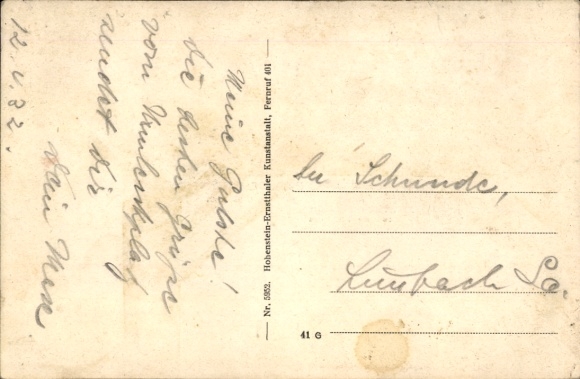 Meine Gutste!
Die besten Grüße
vom
sendet dir
Dein Max
12.V.32.
Nr. 5952. Hohenstein-Ernstthaler Kunstanstalt, Fernruf 401
Schunde,
Limbach Sa.
41 G